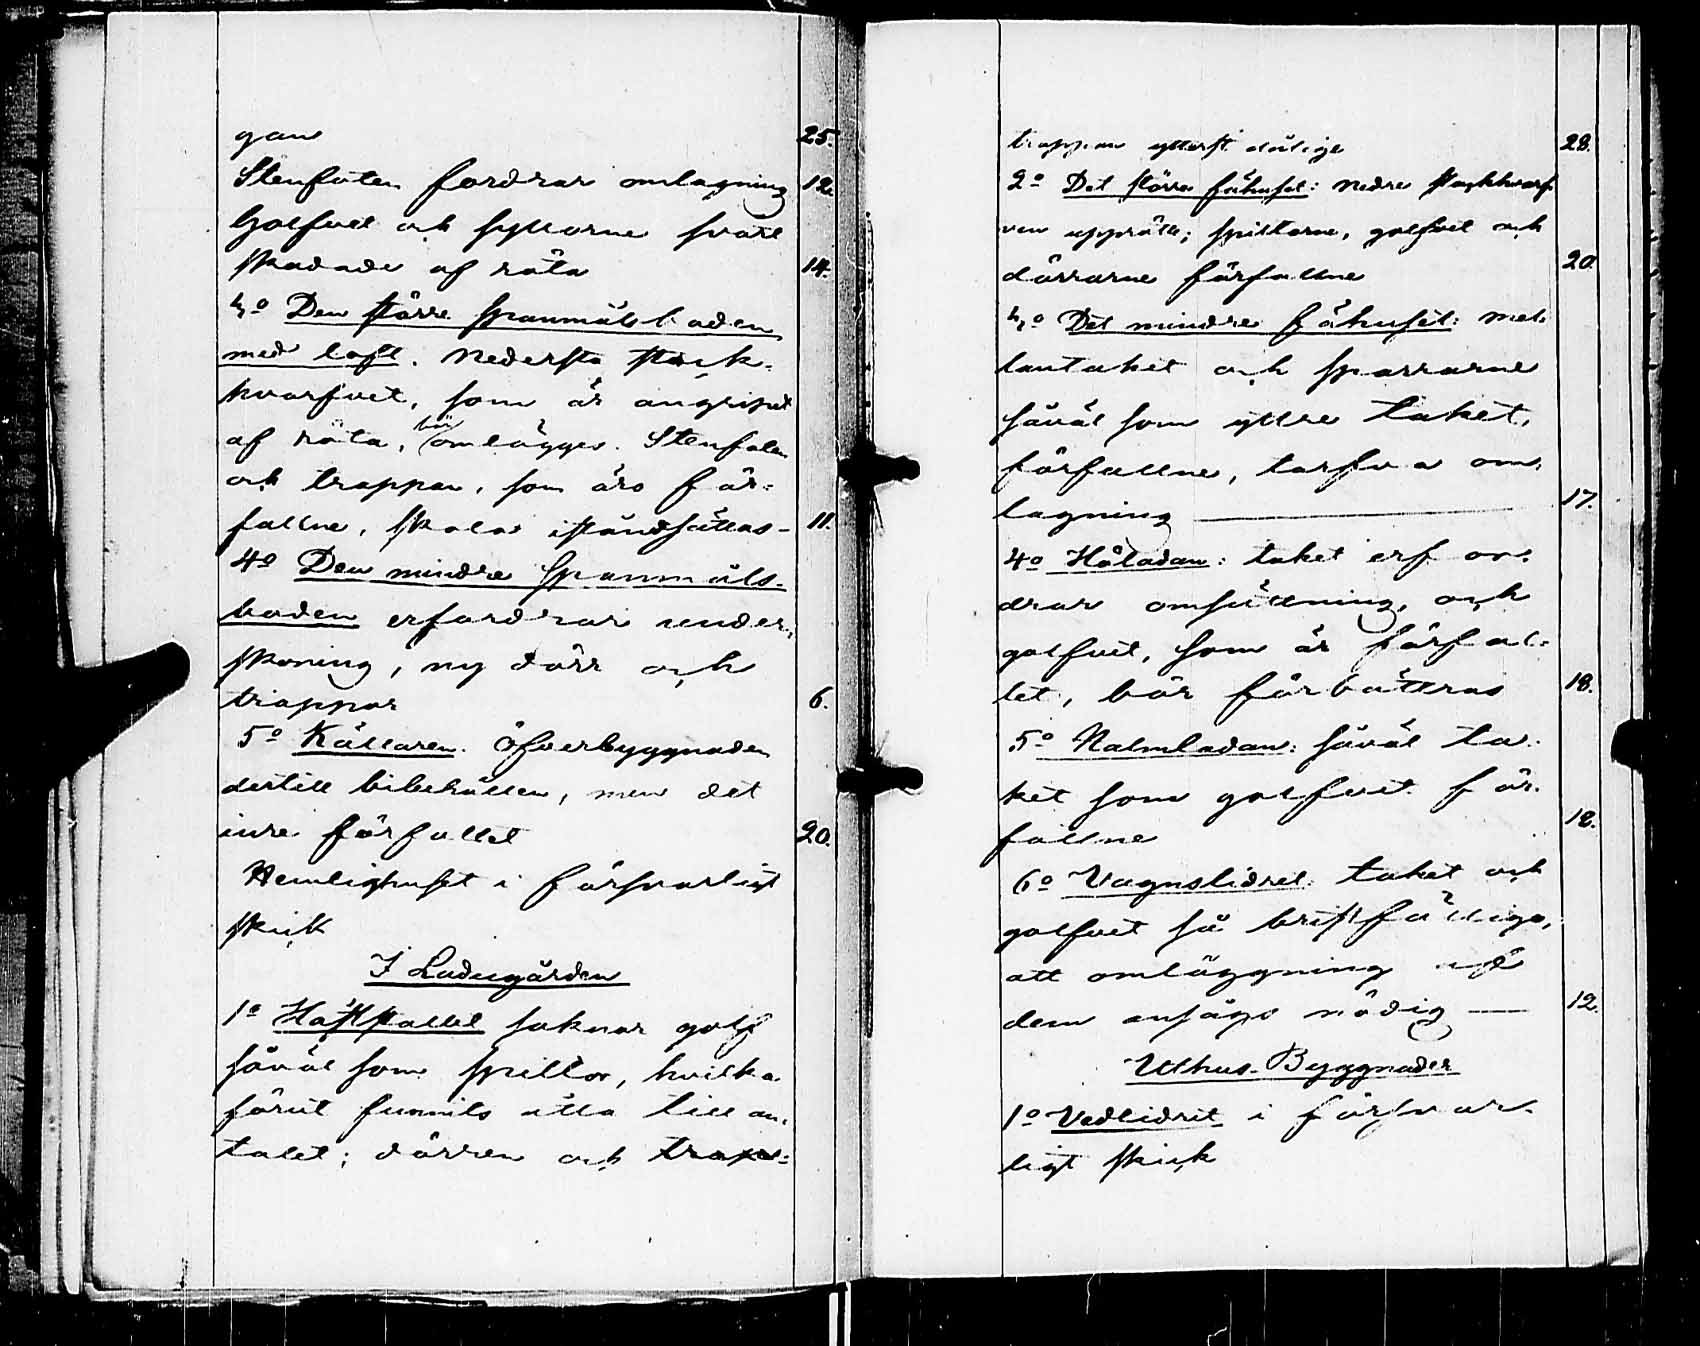 gan 25.
Stenfoten fordrar omlagning 12.
Golfvet och syllorne svårt
skadade af röta 14.
3º Den större spanmålsboden
med loft. Nedersta stock-
hvarfvet, som är angripet
af röta, bör omlägges. Stenfoten
och trappan, som äro för-
fallne, skola iståndsättas - 11.
4º Den mindre Spanmåls-
boden erfordrar under-
skoning, ny dörr och
trappor 6.
5º Källaren. Öfverbyggnaden
dertill bibehållen, men det
inre förfallet 20.
Hemlighuset i försvarligt
skick
I Ladugården
1º Häststallet saknar golf
såväl som spiltor, hvilka
förut funnits åtta till an-
talet; dörren och trap-
trappan ytterst dålige 28.
2º Det större fähuset: nedre stockhvarf-
ven uppröta; spiltorne, golfvet och
dörrarne förfallne 20.
3º Det mindre fähuset: mel-
lantaket och sparrarne
såväl som yttre taket,
förfallne, tarfva om-
lagning 17.
4º Hölodan: taket erfor-
drar omsättning, och
golfvet, som är förfal-
let, bör förbättras 18.
5º Halmladan: såväl ta-
ket som golfvet för-
fallne 12.
6º Vagnslidret: taket och
golfvet så bristfällige,
att omläggning af
dem ansågs nödig 12.
Uthus-Byggnader
1º Vedlidret i försvar-
ligt skick